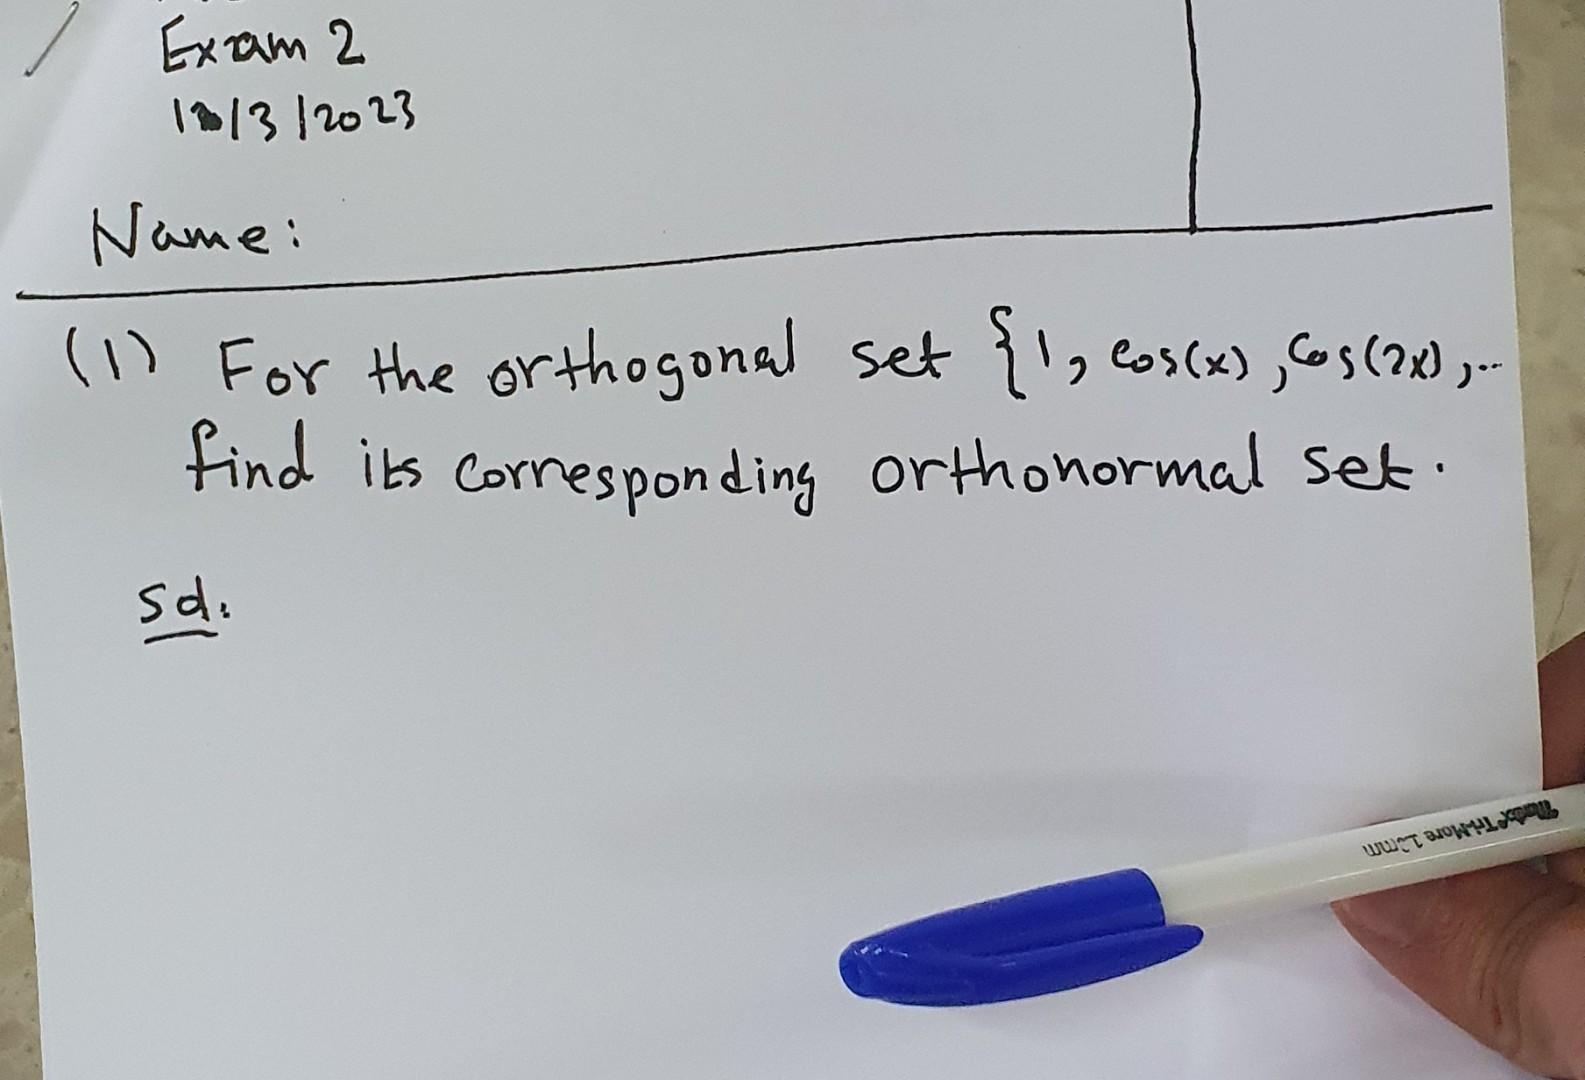 Exam 2
/3/2023
Name:
(1) For the orthogonal set {1, cos(x), cos(2x), ...
find its corresponding orthonormal set.
Sol:
TriMare 1.0mm